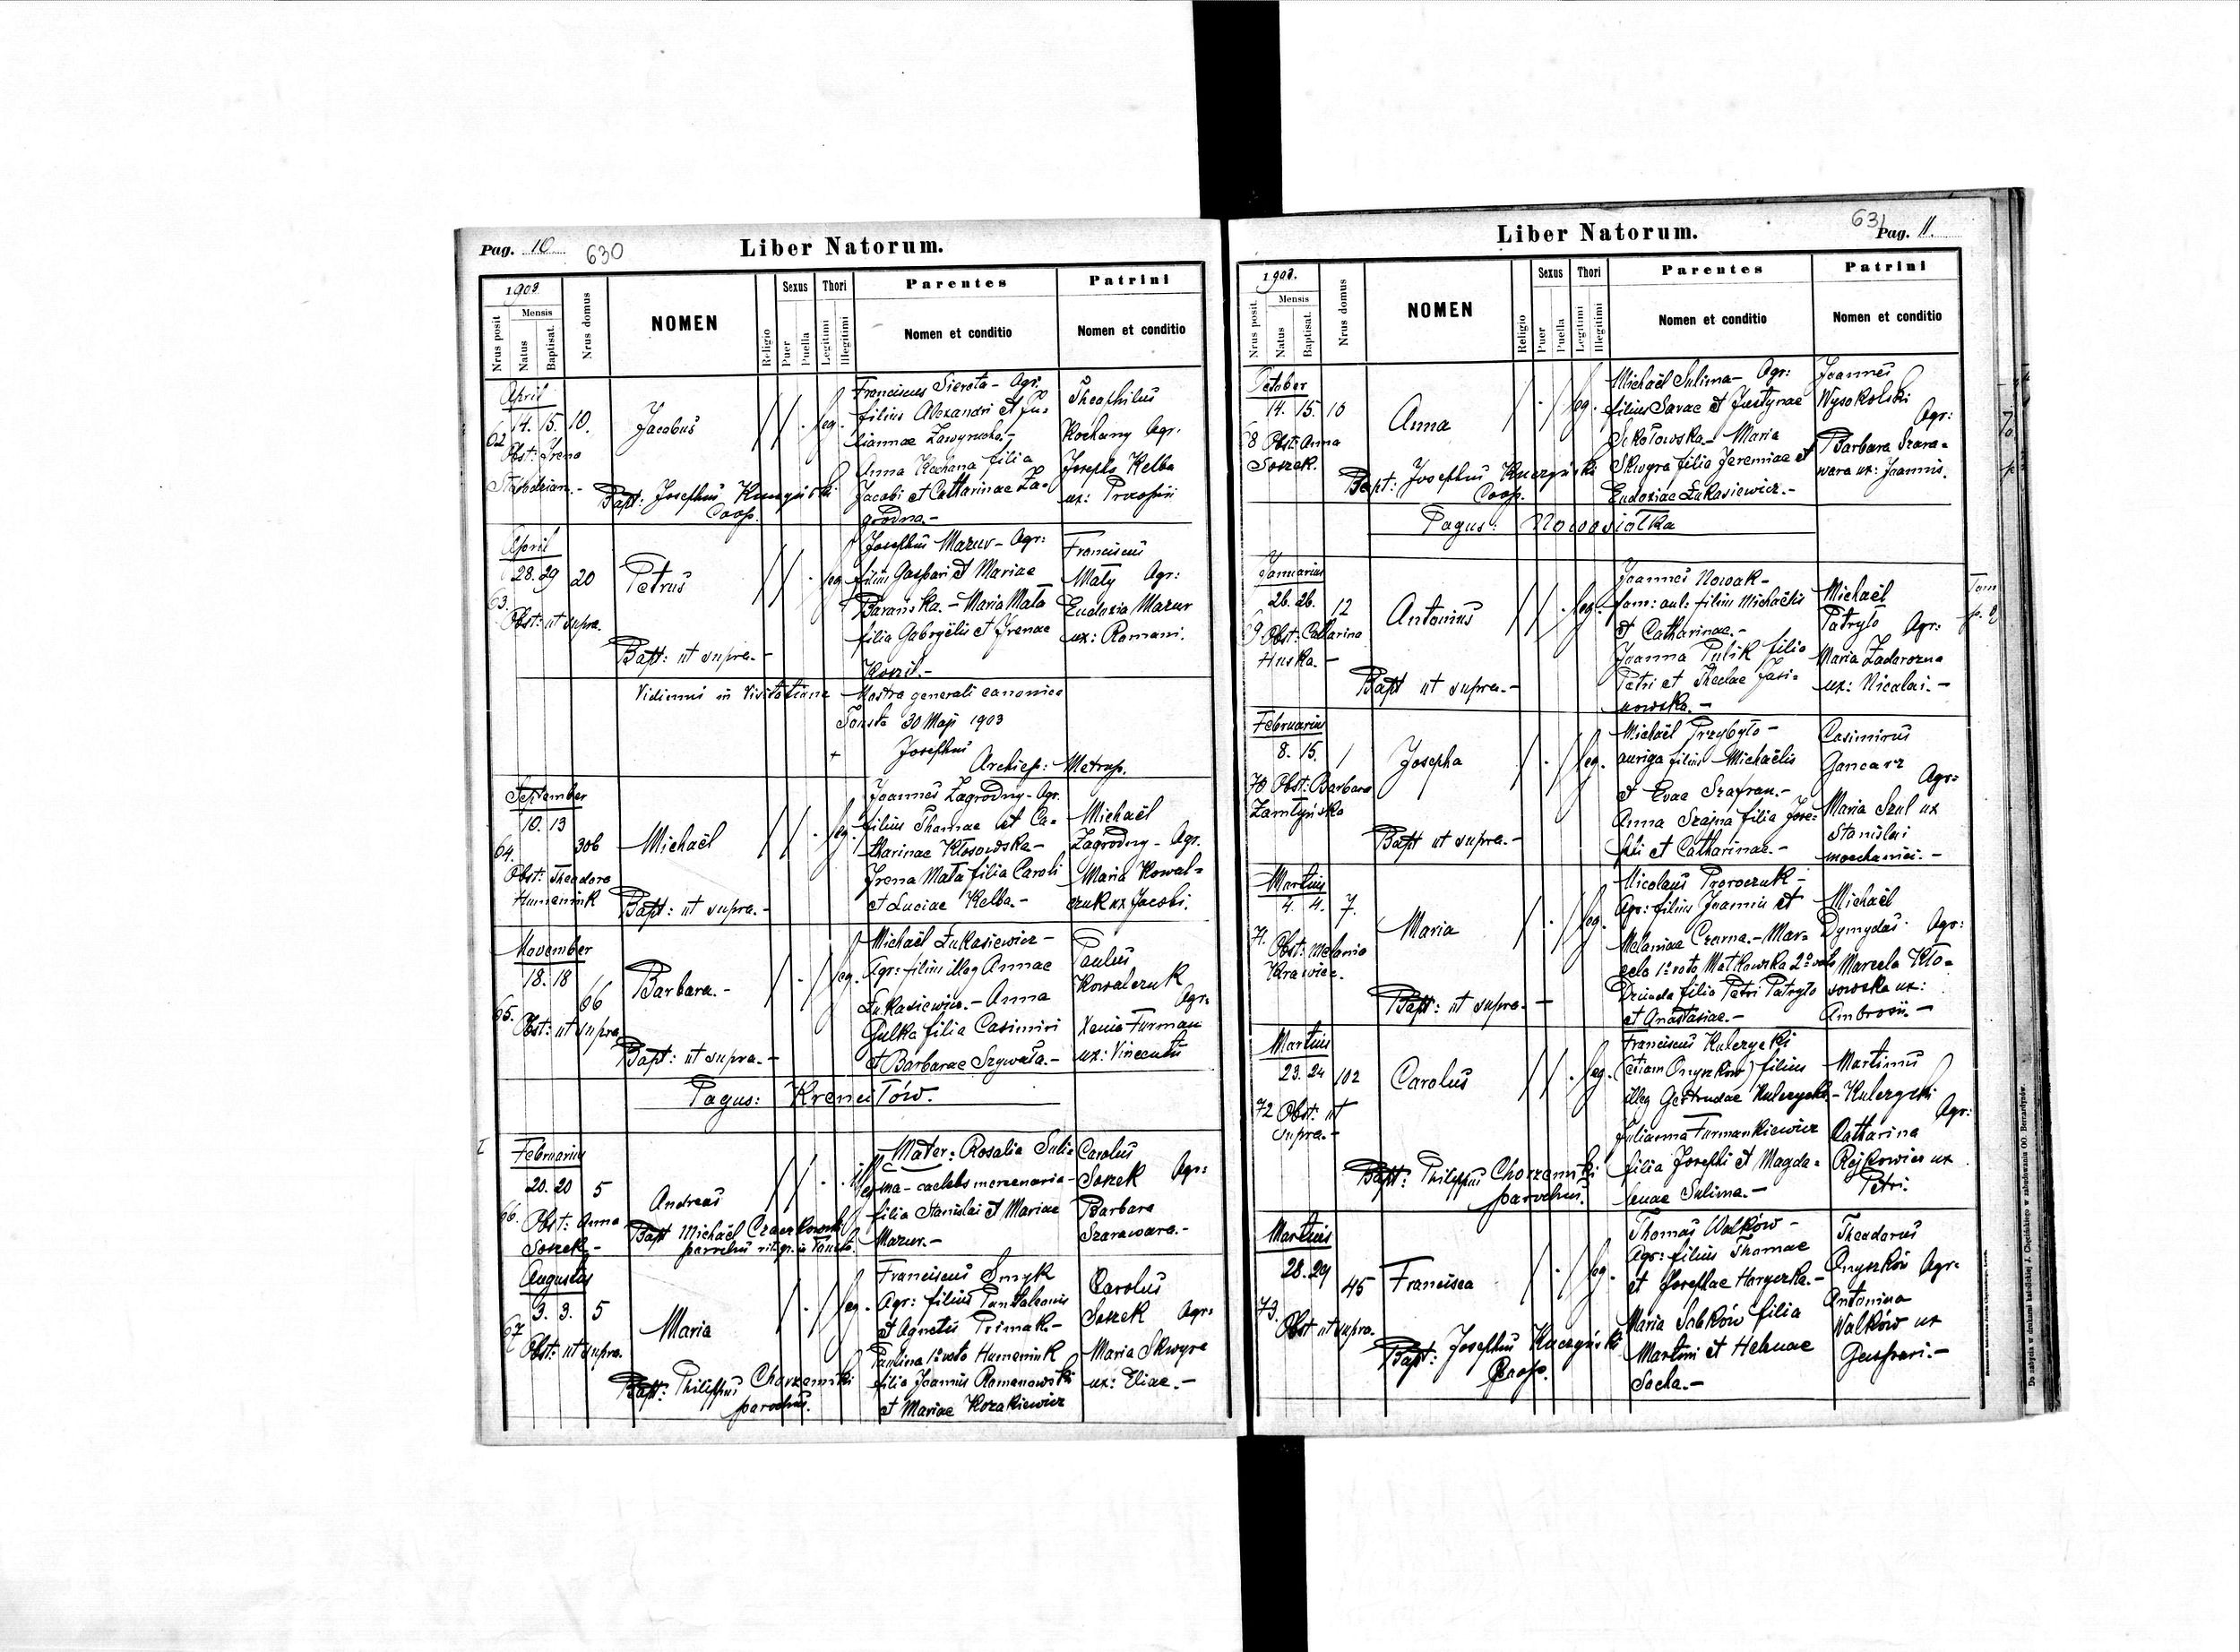 Pag. 10 630 Liber Natorum.
1903. Nrus domus NOMEN Religio Sexus Thori Parentes Patrini
Nrus posit. Mensis Natus Baptisat. Puer Puella Legitimi Illegitimi Nomen et conditio Nomen et conditio
April
62 14. 15. 10. Jacobus leg.
Obst: Irena
Bapt: Josephus Kuczyński
Coop.
Franciscus Siereta - Agr.
filius Alexandri et Ju=
liannae Zawyrucha.-
Anna Kochana filia
Jacobi et Catharinae Za=
grodna.-
Theophilus
Kochany Agr.
Josepha Kelba
ux: Procopii
April
63. 28. 29 20 Petrus leg
Obst: ut supra.
Bapt: ut supra.-
Josephus Mazur - Agr:
filius Gaspari et Mariae
Barańska.- Maria Mała
filia Gabryelis et Irenae
Kozil.-
Franciscus
Mały Agr:
Eudoxia Mazur
ux: Romani.
Vidimus in Visitatione Nostra generali canonica
Touste 30 Maji 1903
+ Josephus
Archiep: Metrop.
September
64. 10. 13 306 Michaël leg.
Obst: Theodora
Humeniuk
Bapt: ut supra.-
Joannes Zagrodny - Agr.
filius Thomae et Ca=
tharinae Kłosowska -
Irena Mała filia Caroli
et Luciae Kelba.-
Michaël
Zagrodny - Agr.
Maria Kowal=
czuk ux Jacobi.
November
65. 18. 18 66 Barbara.- leg.
Obst: ut supra
Bapt: ut supra.-
Michaël Łukasiewicz -
Agr: filius illeg Annae
Łukasiewicz.- Anna
Gulka filia Casimiri
et Barbarae Szywała.-
Paulus
Kowalczuk
Agr:
Xenia Furman
ux: Vincentii
Pagus: Krenciłów.
Februarius
66. 20. 20 5 Andreas illeg
Obst: Anna
Soszek -
Bapt Michaël Czaczkowski
parochus rit. gr. in Touste.
Mater: Rosalia Suli=
ma - caelebs mercenaria -
filia Stanislai et Mariae
Mazur.-
Carolus
Soszek Agr:
Barbara
Szarawara.-
Augustus
67 3. 3. 5 Maria leg.
Obst: ut supra.
Bapt: Philippus Chorzemski
parochus.
Franciscus Smyk
Agr: filius Pantaleonis
et Agnetis Primak.-
Paulina 1º voto Humeniuk
filia Joannis Romanowski
et Mariae Kozakiewicz
Carolus
Soszek Agr:
Maria Skwyra
ux: Eliae.-
631 Liber Natorum. Pag. 11.
1903. Nrus domus NOMEN Religio Sexus Thori Parentes Patrini
Nrus posit. Mensis Natus Baptisat. Puer Puella Legitimi Illegitimi Nomen et conditio Nomen et conditio
October
68 14. 15. 10 Anna leg.
Obst: Anna
Soszek.
Bapt: Josephus Kuczyński
Coop.
Michaël Sulima - Agr:
filius Savae et Justynae
Sokołowska - Maria
Skwyra filia Jeremiae et
Eudoxiae Łukasiewicz.-
Joannes
Wysokolski
Agr:
Barbara Szara=
wara ux: Joannis.
Pagus: Nowosiółka
Januarius
69 26. 26. 12 Antonius leg.
Obst: Catharina
Huska.-
Bapt ut supra.-
Joannes Nowak -
fam: aul: filius Michaëlis
et Catharinae.-
Joanna Pulik filia
Petri et Theclae Jasi=
nowska.-
Michaël
Patryło Agr:
Maria Zadorozna
ux: Nicolai.-
Februarius
70 8. 15. 1 Josepha leg.
Obst: Barbara
Zamłyńska
Bapt ut supra.-
Michaël Przybyło -
auriga filius Michaëlis
et Evae Szafran.-
Anna Szajna filia Jose=
phi et Catharinae.-
Casimirus
Gancarz
Agr:
Maria Szul ux
Stanislai
moechanici.-
Martius
71. 4. 4. 7. Maria leg.
Obst: Melania
Krawiec.
Bapt: ut supra -
Nicolaus Proroczuk -
Agr: filius Joannis et
Melaniae Czarna.- Mar=
cela 1º voto Matkowska 2º voto
Dziuda filia Petri Patryło
et Anastasiae.-
Michaël
Dymydas Agr:
Marcela Kło=
sowska ux:
Ambrosii.-
Martius
72 23. 24 102 Carolus leg.
Obst: ut
supra.-
Bapt: Philippus Chorzemski
parochus.
Franciscus Kulczycki
(etiam Onyszków) filius
illeg Gertrudae Kulczycka.-
Julianna Furmankiewicz
filia Josephi et Magda=
lenae Sulima.-
Martinus
Kulczycki
Agr:
Catharina
Rojkowicz ux
Petri.
Martius
73. 28. 29 45 Francisca leg.
Obst ut supra.
Bapt: Josephus Kuczyński
Coop.
Thomas Walków -
Agr: filius Thomae
et Josephae Haryczka.-
Maria Sabków filia
Martini et Helenae
Socha.-
Theodorus
Onyszków Agr:
Antonina
Walków ux
Gaspari.-
Do nabycia w drukarni katolickiej J. Chęcińskiego w zabudowaniu OO. Bernardynów